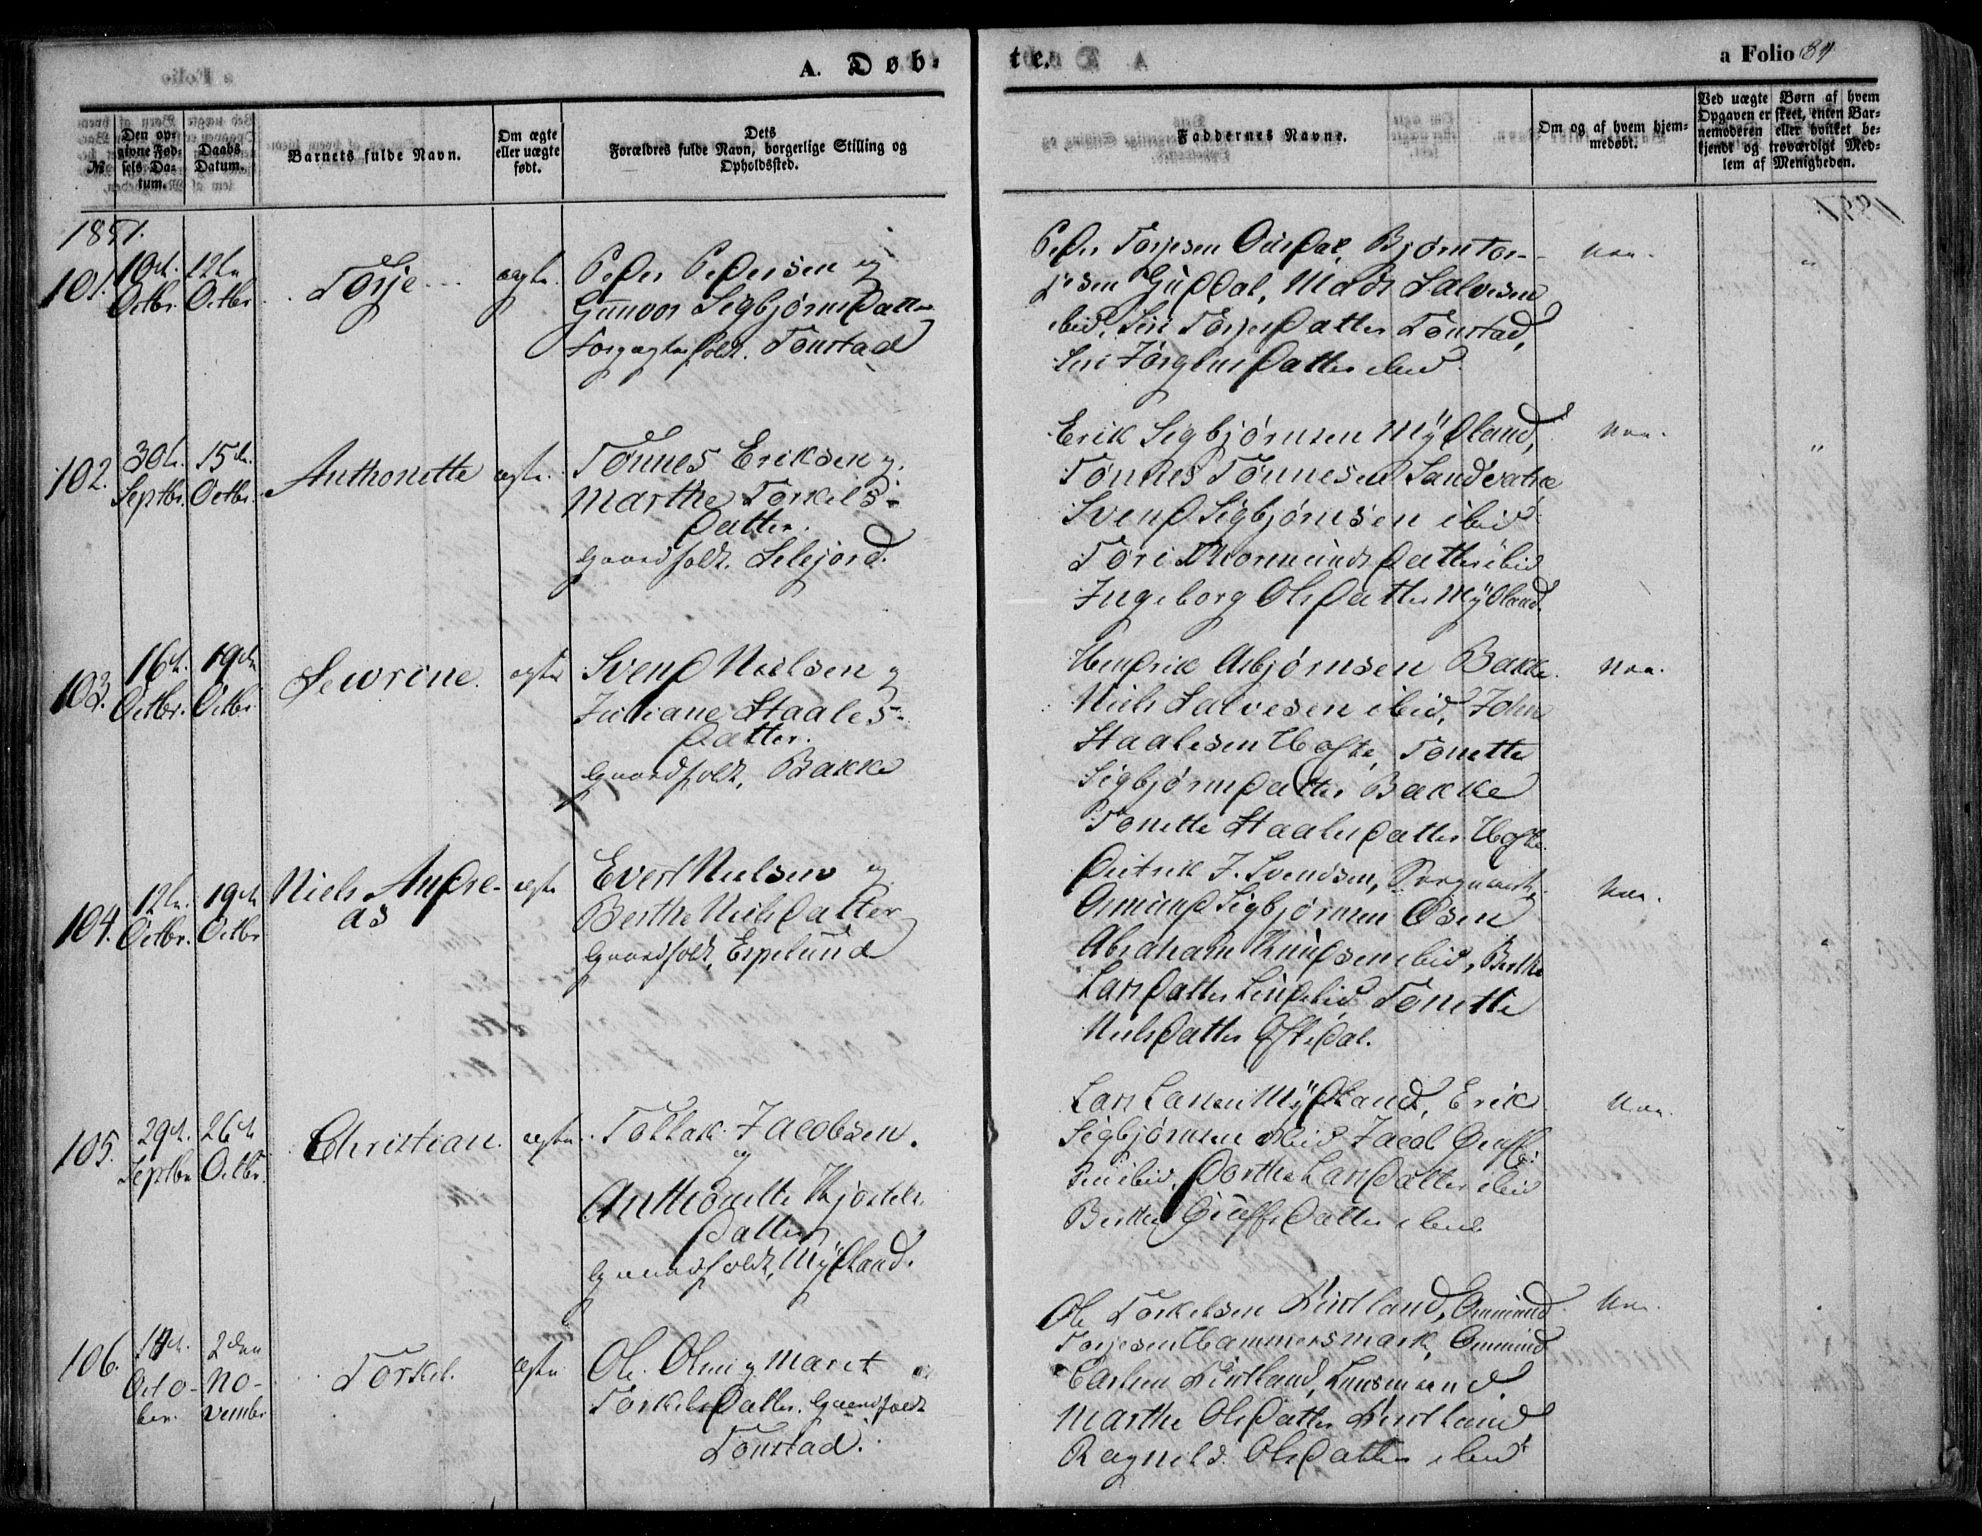 A. Døb-
te.
a Folio 84
№
Den opgivne Fødsels Datum.
Daabs Datum.
Barnets fulde Navn.
Om ægte eller uægte født.
Dets Forældres fulde Navn, borgerlige Stilling og Opholdssted.
Faddernes Navne.
Om og af hvem hjemmedøbt.
Ved uægte Børn af hvem Opgaven er skeet, enten Barnemoderen eller hvilket bekjendt og troværdigt Medlem af Menigheden.
1851.
101. 10de Octbr. 12te Octbr. Torje ægte
Peder Pedersen og
Gunvor Sigbjørnsdatter
folk. Tonstad
Peder Torjesen Ousdal, Bjørn Tor-
jesen Guddal, Mads Salvesen
ibid, Siri Torjesdatter Tonstad,
Siri datter ibid.
102. 30te Septbr. 15de Octbr. Anthonette ægte
Tønnes Eriksen og
Marthe Torkels-
datter.
Gaardfolk. Selejord.
Erik Sigbjørnsen Mydland,
Tønnes Tønnesen Sandvatne
Svend Sigbjørnsen ibid
Tori Thormundsdatter ibid
Ingeborg Olsdatter Mydland.
103. 16de Octbr. 19de Octbr. Sewrine. ægte
Svend Nielsen og
Juliane Staales-
datter.
Gaardfolk, Bakke
Hendrik Asbjørnsen Bakke.
Niels Salvesen ibid, John
Staalesen Hofte, Tonette
Sigbjørnsdatter Bakke
Tonette Staalesdatter Hofte.
104. 12te Octbr. 19de Octbr. Niels Andre-
as ægte
Evert Nielsen og
Berthe Nielsdatter
Gaardfolk, Espelund
Didrik J. Svendsen,
Omund Sigbjørnsen Øsen
Abraham Knudsen ibid, Berthe
Larsdatter Lindelid Tonette
Nielsdatter Eftedal.
105. 29de Septbr 26de Octbr. Christian. ægte
Tollak Jacobsen
og
Anthonette Kjostels-
datter
Gaardfolk, Mydland.
Lars Larsen Mydland, Erik
Sigbjørnsen ibid Jacob
ibid, Dorthe Larsdatter ibid
Berthe datter ibid
106. 14de October. 2den November Torkel. ægte
Ole Olsen og Maret
Torkelsdatter. Gaardfolk
Tonstad.
Ole Torkelsen Lindland, Ommund
Torjesen Hammersmark, Ommund
Carlsen Lindland, Lensmand.
Marthe Olsdatter Lindland
Ragnild Olsdatter ibid